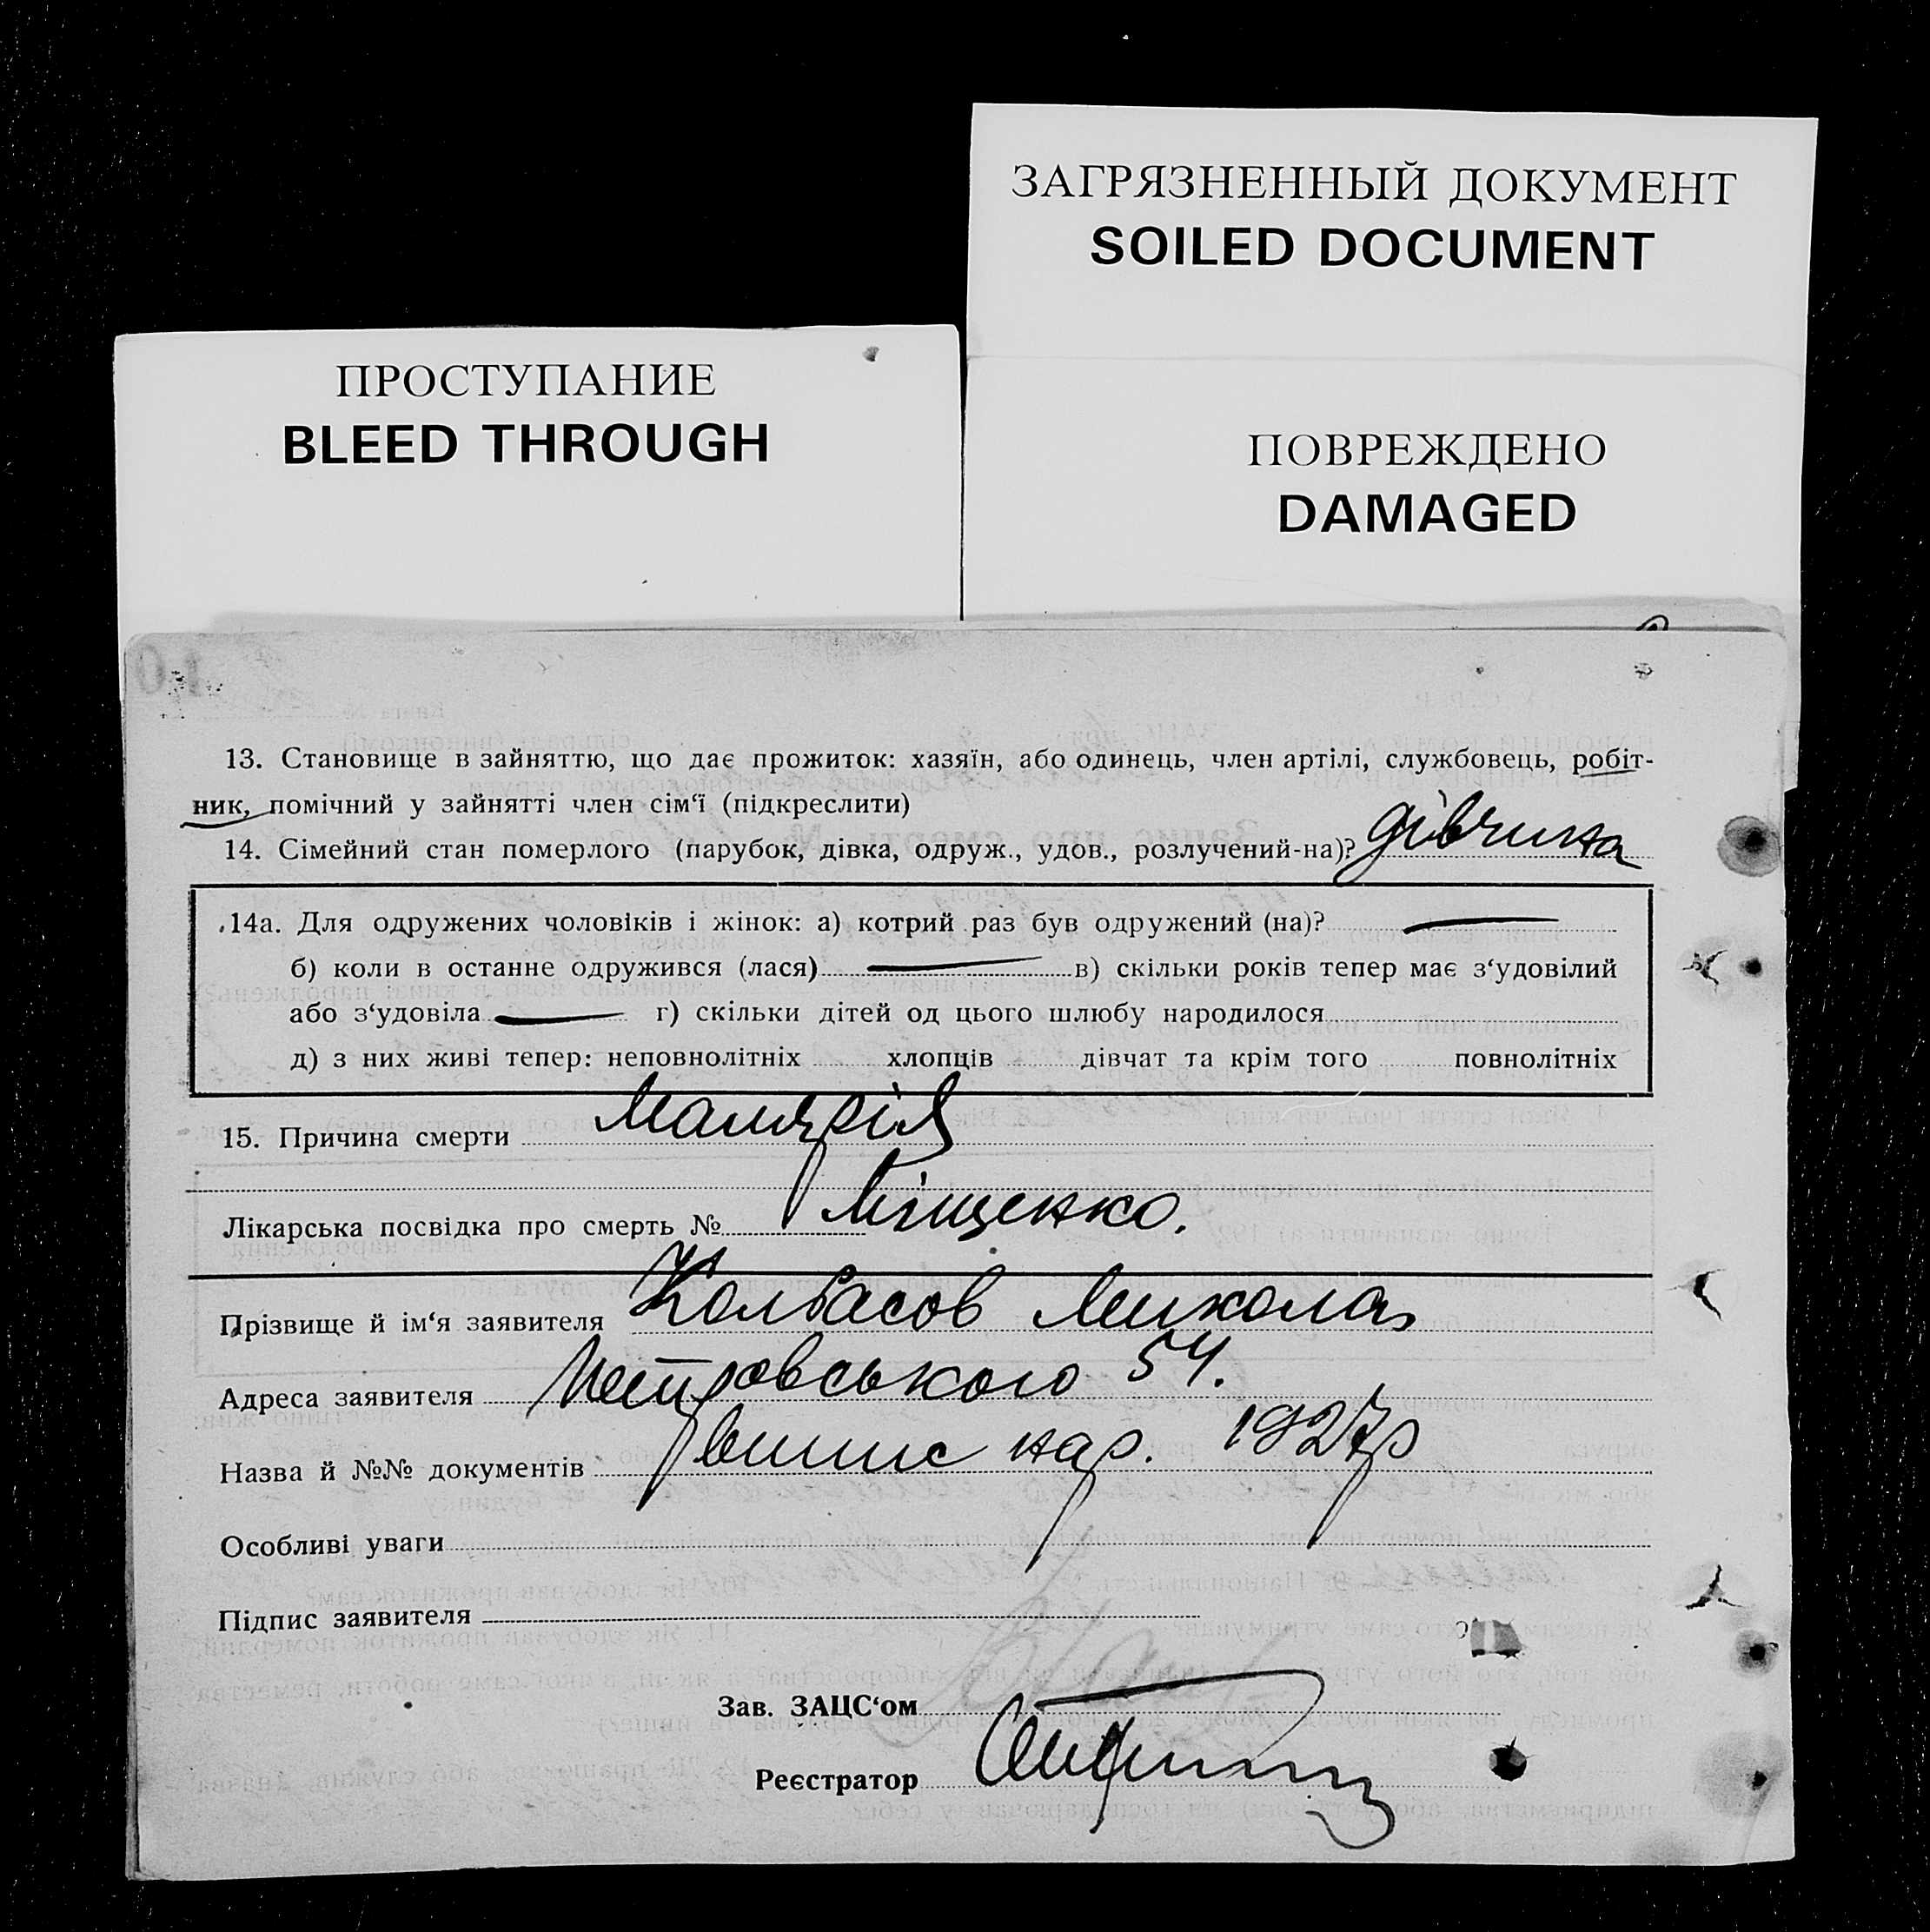 ЗАГРЯЗНЕННЫЙ ДОКУМЕНТ
SOILED DOCUMENT
ПРОСТУПАНИЕ
BLEED THROUGH
ПОВРЕЖДЕНО
DAMAGED
13. Становище в зайняттю, що дає прожиток: хазяїн, або одинець, член артілі, службовець, робіт-
ник, помічний у зайнятті член сім‘ї (підкреслити)
14. Сімейний стан померлого (парубок, дівка, одруж., удов., розлучений-на)? дівчина
14а. Для одружених чоловіків і жінок: а) котрий раз був одружений (на)?
б) коли в останнє одружився (лася) в) скільки років тепер має з‘удовілий
або з‘удовіла г) скільки дітей од цього шлюбу народилося
д) з них живі тепер: неповнолітніх хлопців дівчат та крім того повнолітніх
15. Причина смерти Малярія
Лікарська посвідка про смерть № Міщенко.
Прізвище й ім‘я заявителя Колбасов Микола
Адреса заявителя Петровського 54.
Назва й №№ документів випис нар. 1927р
Особливі уваги
Підпис заявителя
Зав. ЗАЦС‘ом
Реєстратор